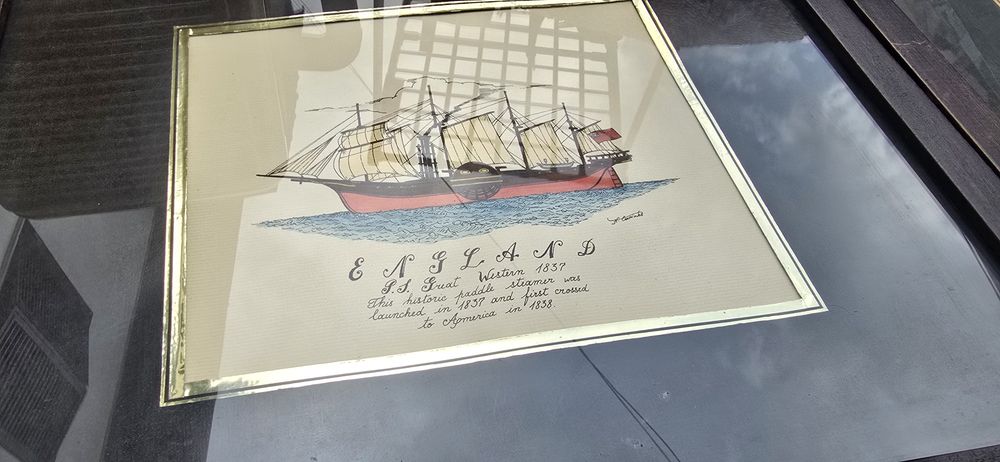 ENGLAND
P.S. Great Western 1837
This historic paddle steamer was
launched in 1837 and first crossed
to Apmerica in 1838.